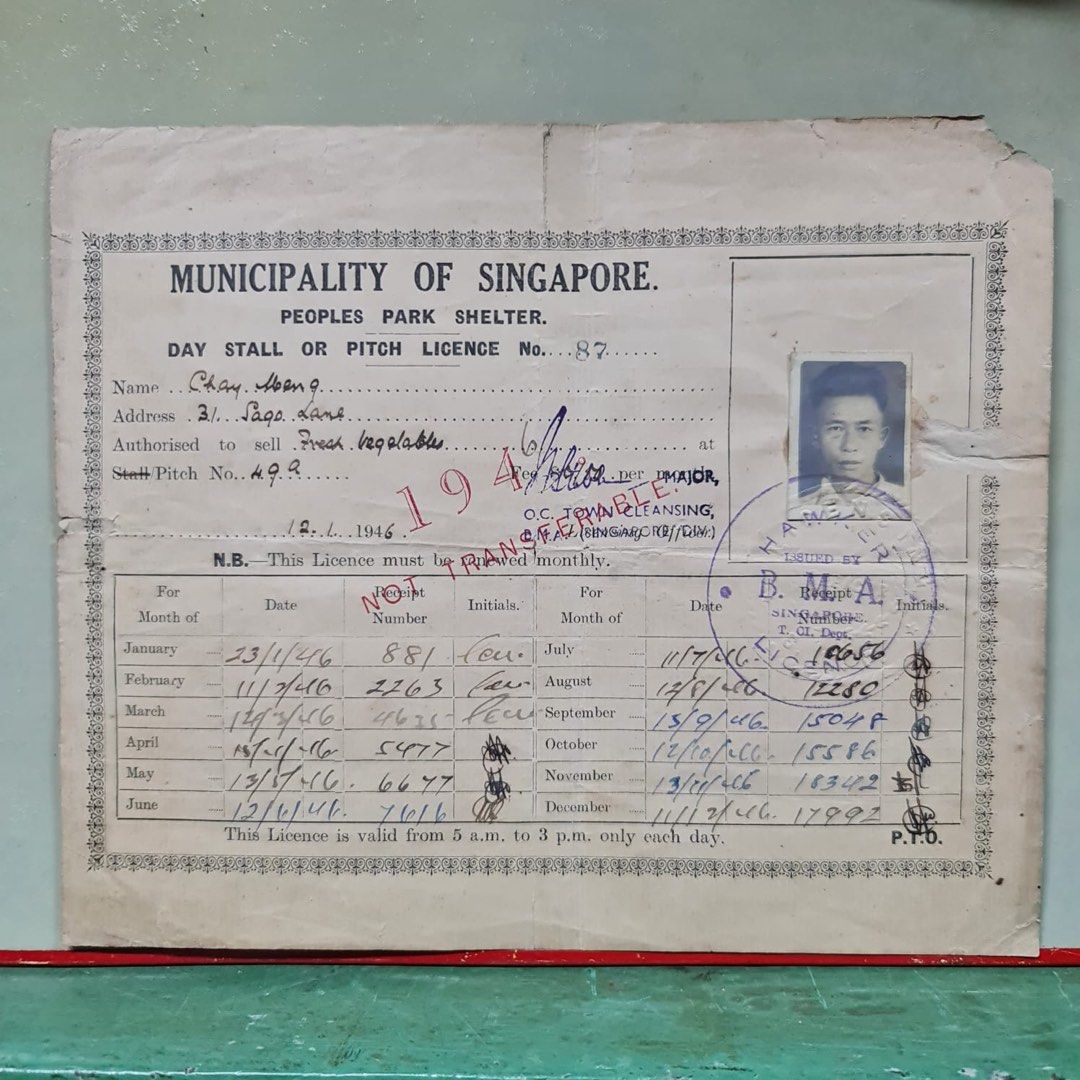 MUNICIPALITY OF SINGAPORE.
PEOPLES PARK SHELTER.
DAY STALL OR PITCH LICENCE No....87......
Name .. Chay Meng
Address . 31. Sago Lane
Authorised to sell Fresh Vegetables at
Stall/Pitch No.. 49a
Fee per
MAJOR,
O.C. TOWN CLEANSING,
12.1. 1946
194
NOT TRANSFERABLE.
N.B.—This Licence must be renewed monthly.
HAWKER
ISSUED BY
B. M. A.
SINGAPORE.
T. Cl. Dept.
LICENCE
For Month of Date Receipt Number Initials. For Month of Date Receipt Number Initials.
January 23/1/46 881 July 11/7/46. 10656
February 11/2/46 2263 August 12/8/46. 12280
March 12/3/46 September 13/9/46. 15048
April 5477 October 12/10/46. 15586
May 13/5/46. 6677 November 13/11/46 18342
June 12/6/46. 7616 December 11/12/46. 17992
This Licence is valid from 5 a.m. to 3 p.m. only each day. P.T.O.